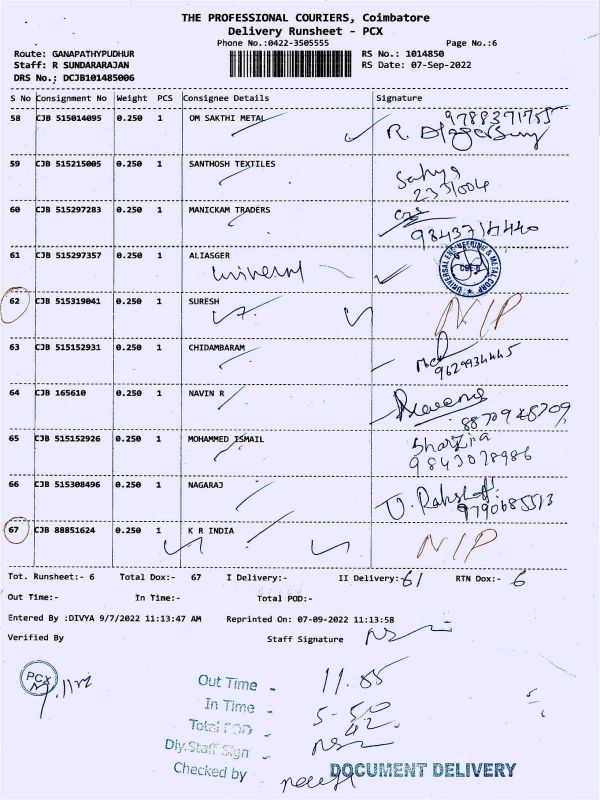 THE PROFESSIONAL COURIERS, Coimbatore
Delivery Runsheet - PCX
Phone No.:0422-3505555
Page No.:6
Route: GANAPATHYPUDHUR
RS No.: 1014850
Staff: R SUNDARARAJAN
RS Date: 07-Sep-2022
DRS No.: DCJB101485006
S No Consignment No Weight PCS Consignee Details Signature
58 CJB 515014095 0.250 1 OM SAKTHI METAL
59 CJB 515215005 0.250 1 SANTHOSH TEXTILES
Sathya
60 CJB 515297283 0.250 1 MANICKAM TRADERS
61 CJB 515297357 0.250 1 ALIASGER
universal
UNIVERSAL ENGINEERING & METAL CORP
62 CJB 515319041 0.250 1 SURESH
N/P
63 CJB 515152931 0.250 1 CHIDAMBARAM
9629934445
64 CJB 165610 0.250 1 NAVIN R
8870948709
65 CJB 515152926 0.250 1 MOHAMMED ISMAIL
9843078986
66 CJB 515308496 0.250 1 NAGARAJ
9790685513
67 CJB 88851624 0.250 1 K R INDIA
N/P
Tot. Runsheet:- 6 Total Dox:- 67 I Delivery:- II Delivery:- 61 RTN Dox:- 6
Out Time:- In Time:- Total POD:-
Entered By :DIVYA 9/7/2022 11:13:47 AM Reprinted On: 07-09-2022 11:13:58
Verified By Staff Signature
PCX
Out Time - 11.55
In Time - 5-50
Total POD - 42
Dly.Staff Sign -
Checked by
DOCUMENT DELIVERY